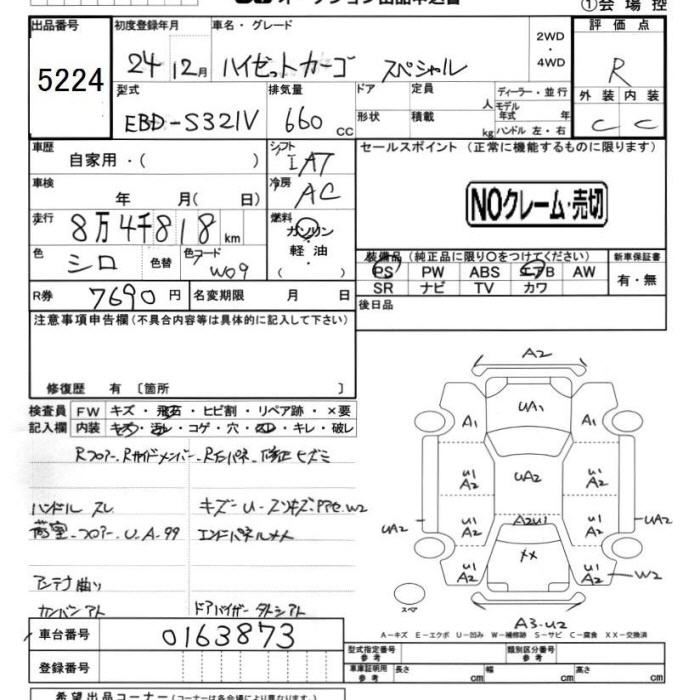 ①会場控
出品番号
5224
初度登録年月
24 12月
車名・グレード
ハイゼットカーゴ スペシャル
2WD
・
4WD
評価点
R
外装 内装
C C
型式
EBD-S321V
排気量
660 CC
ドア
形状
定員 人
積載 kg
ディーラー・並行
モデル年式 年
ハンドル 左・右
車歴
自家用・( )
シフト
IAT
セールスポイント(正常に機能するものに限ります)
NOクレーム・売切
車検
年 月( 日)
冷房
AC
走行
8万4千818 km
燃料
ガソリン
・
軽油
( )
色
シロ
色替
色コード
W09
装備品(純正品に限り○をつけてください)
PS PW ABS エアB AW
SR ナビ TV カワ
新車保証書
有・無
R券 7690円 名変期限 月 日
後日品
注意事項申告欄(不具合内容等は具体的に記入して下さい)
修復歴 有〔箇所 〕
検査員記入欄
FW キズ・飛石・ヒビ割・リペア跡・×要
内装 キズ・汚レ・コゲ・穴・スレ・キレ・破レ
Rフロアー、Rサイドメンバー、Rエンドパネル 修正ヒズミ
ハンドル スレ
キズ-U-
荷室-フロアー-U.A-99
エンドパネルメメ
アンテナ曲り
カンバンアト
ドアバイザー タトシアト
A2
UA1
A1 A1
U1 A2
UA2
U1 A2
UA2
U1 A2
A2U1
U1 A2
UA2
U1 A2
XX
U1 A2
W2
スペア
A3-U2
A-キズ E-エクボ U-凹み W-補修跡 S-サビ C-腐食 XX-交換済
車台番号
0163873
登録番号
型式指定番号
参考
類別区分番号
参考
車庫証明用
参考
長さ cm
幅 cm
高さ cm
希望出品コーナー(コーナーは各会場により異なります)